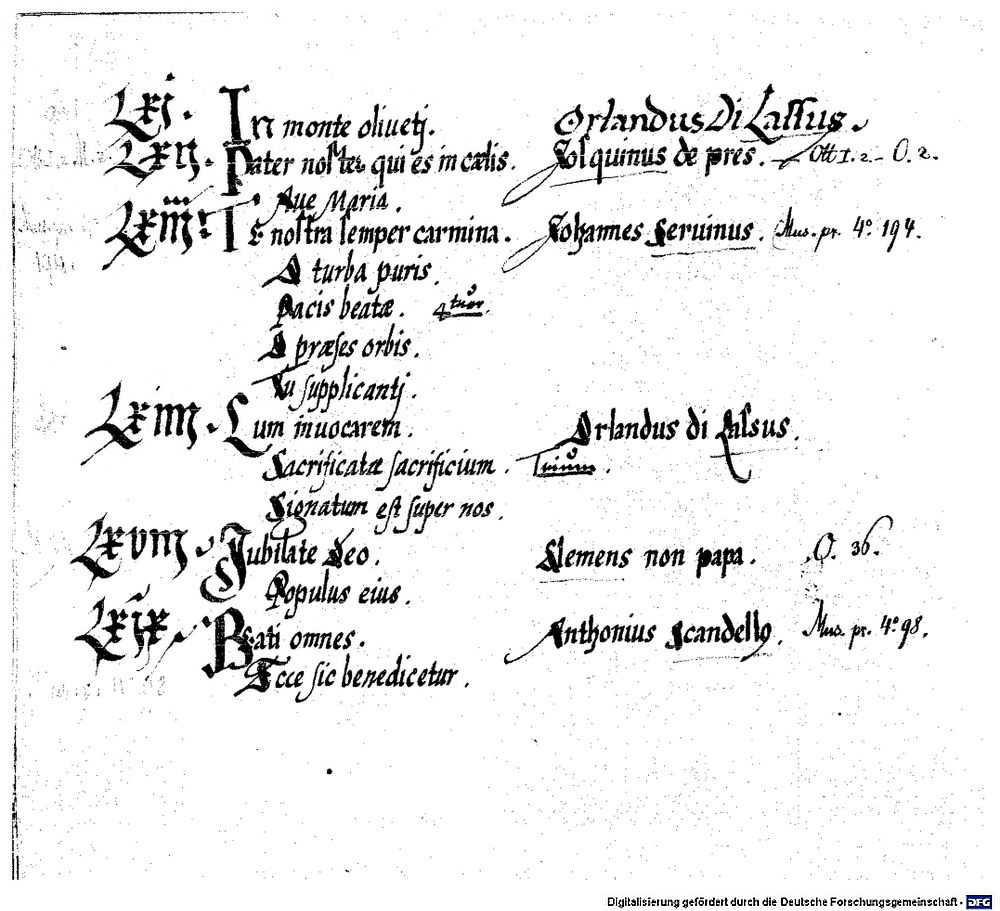 Lxj. In monte oliuetj. Orlandus Di Lassus.
Lxij. Pater noster qui es in cælis. Josquinus de pres. — Ott I. 2. – O. 2.
Aue Maria.
Lxiij: Te nostra semper carmina. Johannes Seruinus. Mus. pr. 4º 194.
O turba puris.
Pacis beatæ. 4tuor.
O præses orbis.
Tu supplicantj.
Lxiiij. Cum inuocarem. Orlandus di Lassus.
Sacrificatæ sacrificium. Trium.
Signatum est super nos.
Jubilate Deo. Clemens non papa. O. 36.
Populus eius.
Lxix. Beati omnes. Anthonius Scandellꝰ. Mus. pr. 4º 98.
Ecce sic benedicetur.
Digitalisierung gefördert durch die Deutsche Forschungsgemeinschaft - DFG